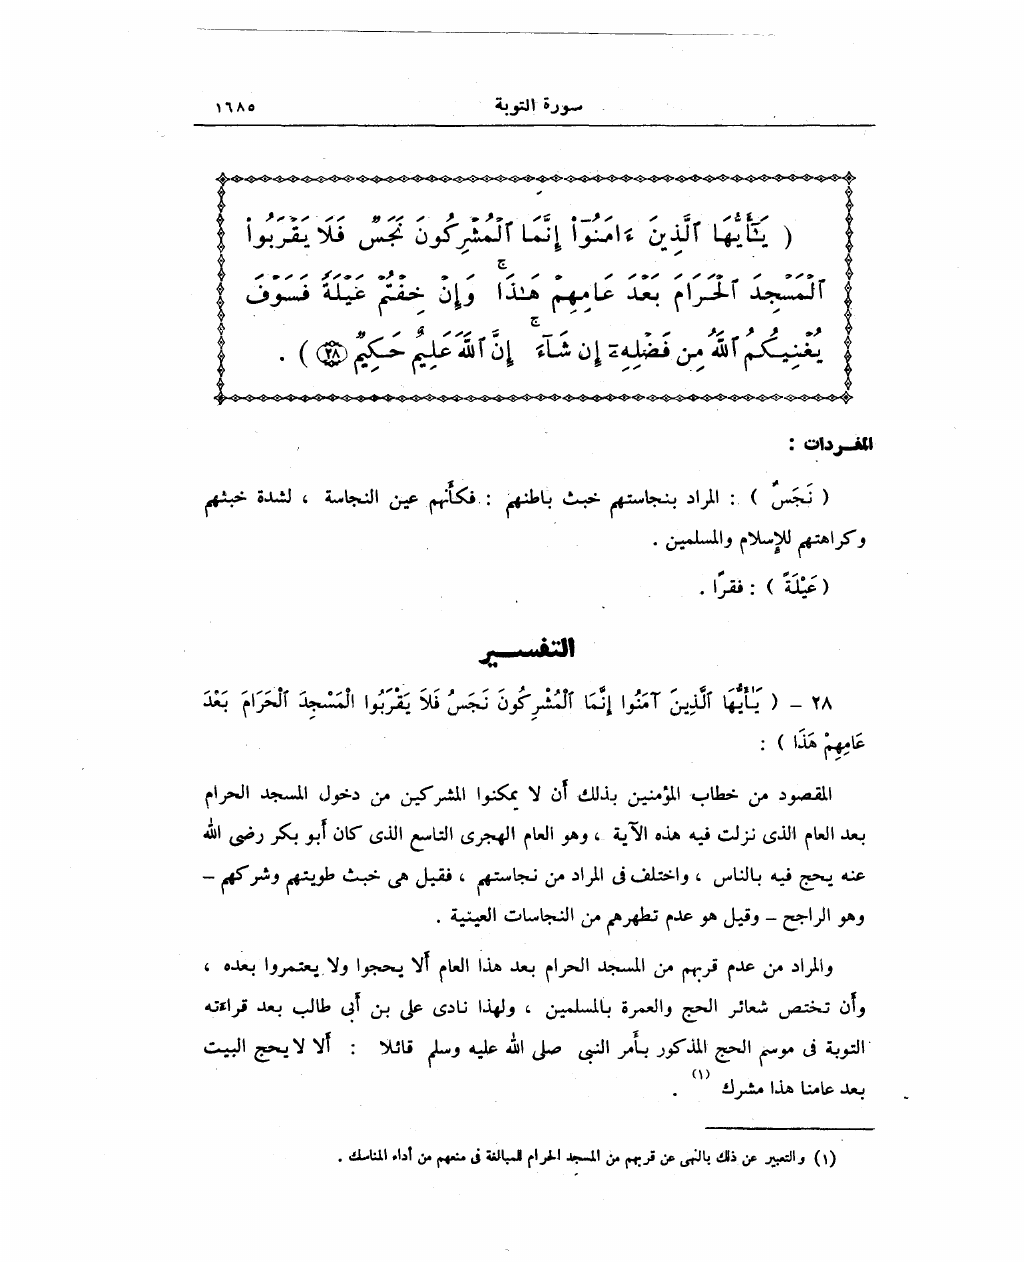 سورة التوبة ١٦٨٥
( يَٰٓأَيُّهَا ٱلَّذِينَ ءَامَنُوٓا۟ إِنَّمَا ٱلْمُشْرِكُونَ نَجَسٌ فَلَا يَقْرَبُوا۟
ٱلْمَسْجِدَ ٱلْحَرَامَ بَعْدَ عَامِهِمْ هَٰذَا ۚ وَإِنْ خِفْتُمْ عَيْلَةً فَسَوْفَ
يُغْنِيكُمُ ٱللَّهُ مِن فَضْلِهِۦٓ إِن شَآءَ ۚ إِنَّ ٱللَّهَ عَلِيمٌ حَكِيمٌ ٢٨ ) .
المفـردات :
( نَجَسٌ ) : المراد بنجاستهم خبث باطنهم : فكأنهم عين النجاسة ، لشدة خبثهم
وكراهتهم للإسلام والمسلمين .
( عَيْلَةً ) : فقرًا .
التفســـير
٢٨ – ( يَٰأَيُّهَا ٱلَّذِينَ آمَنُوا إِنَّمَا ٱلْمُشْرِكُونَ نَجَسٌ فَلاَ يَقْرَبُوا الْمَسْجِدَ ٱلْحَرَامَ بَعْدَ
عَامِهِمْ هَذَا ) :
المقصود من خطاب المؤمنين بذلك أن لا يمكنوا المشركين من دخول المسجد الحرام
بعد العام الذى نزلت فيه هذه الآية ، وهو العام الهجرى التاسع الذى كان أبو بكر رضى الله
عنه يحج فيه بالناس ، واختلف فى المراد من نجاستهم ، فقيل هى خبث طويتهم وشركهم –
وهو الراجح – وقيل هو عدم تطهرهم من النجاسات العينية .
والمراد من عدم قربهم من المسجد الحرام بعد هذا العام ألا يحجوا ولا يعتمروا بعده ،
وأن تختص شعائر الحج والعمرة بالمسلمين ، ولهذا نادى على بن أبى طالب بعد قراءته
التوبة فى موسم الحج المذكور بأمر النبى صلى الله عليه وسلم قائلا : ألا لا يحج البيت
بعد عامنا هذا مشرك (١) .
(١) والتعبير عن ذلك بالنهى عن قربهم من المسجد الحرام للمبالغة فى منعهم من أداء المناسك .